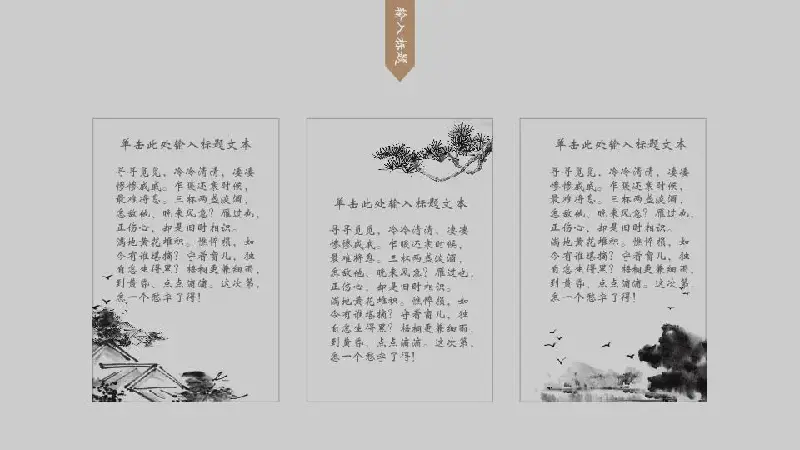 输入标题
单击此处输入标题文本
寻寻觅觅，冷冷清清，凄凄
惨惨戚戚。乍暖还寒时候，
最难将息。三杯两盏淡酒，
怎敌他、晚来风急？雁过也，
正伤心，却是旧时相识。
满地黄花堆积。憔悴损，如
今有谁堪摘？守着窗儿，独
自怎生得黑？梧桐更兼细雨，
到黄昏、点点滴滴。这次第，
怎一个愁字了得！
单击此处输入标题文本
寻寻觅觅，冷冷清清，凄凄
惨惨戚戚。乍暖还寒时候，
最难将息。三杯两盏淡酒，
怎敌他、晚来风急？雁过也，
正伤心，却是旧时相识。
满地黄花堆积。憔悴损，如
今有谁堪摘？守着窗儿，独
自怎生得黑？梧桐更兼细雨，
到黄昏、点点滴滴。这次第，
怎一个愁字了得！
单击此处输入标题文本
寻寻觅觅，冷冷清清，凄凄
惨惨戚戚。乍暖还寒时候，
最难将息。三杯两盏淡酒，
怎敌他、晚来风急？雁过也，
正伤心，却是旧时相识。
满地黄花堆积。憔悴损，如
今有谁堪摘？守着窗儿，独
自怎生得黑？梧桐更兼细雨，
到黄昏、点点滴滴。这次第，
怎一个愁字了得！